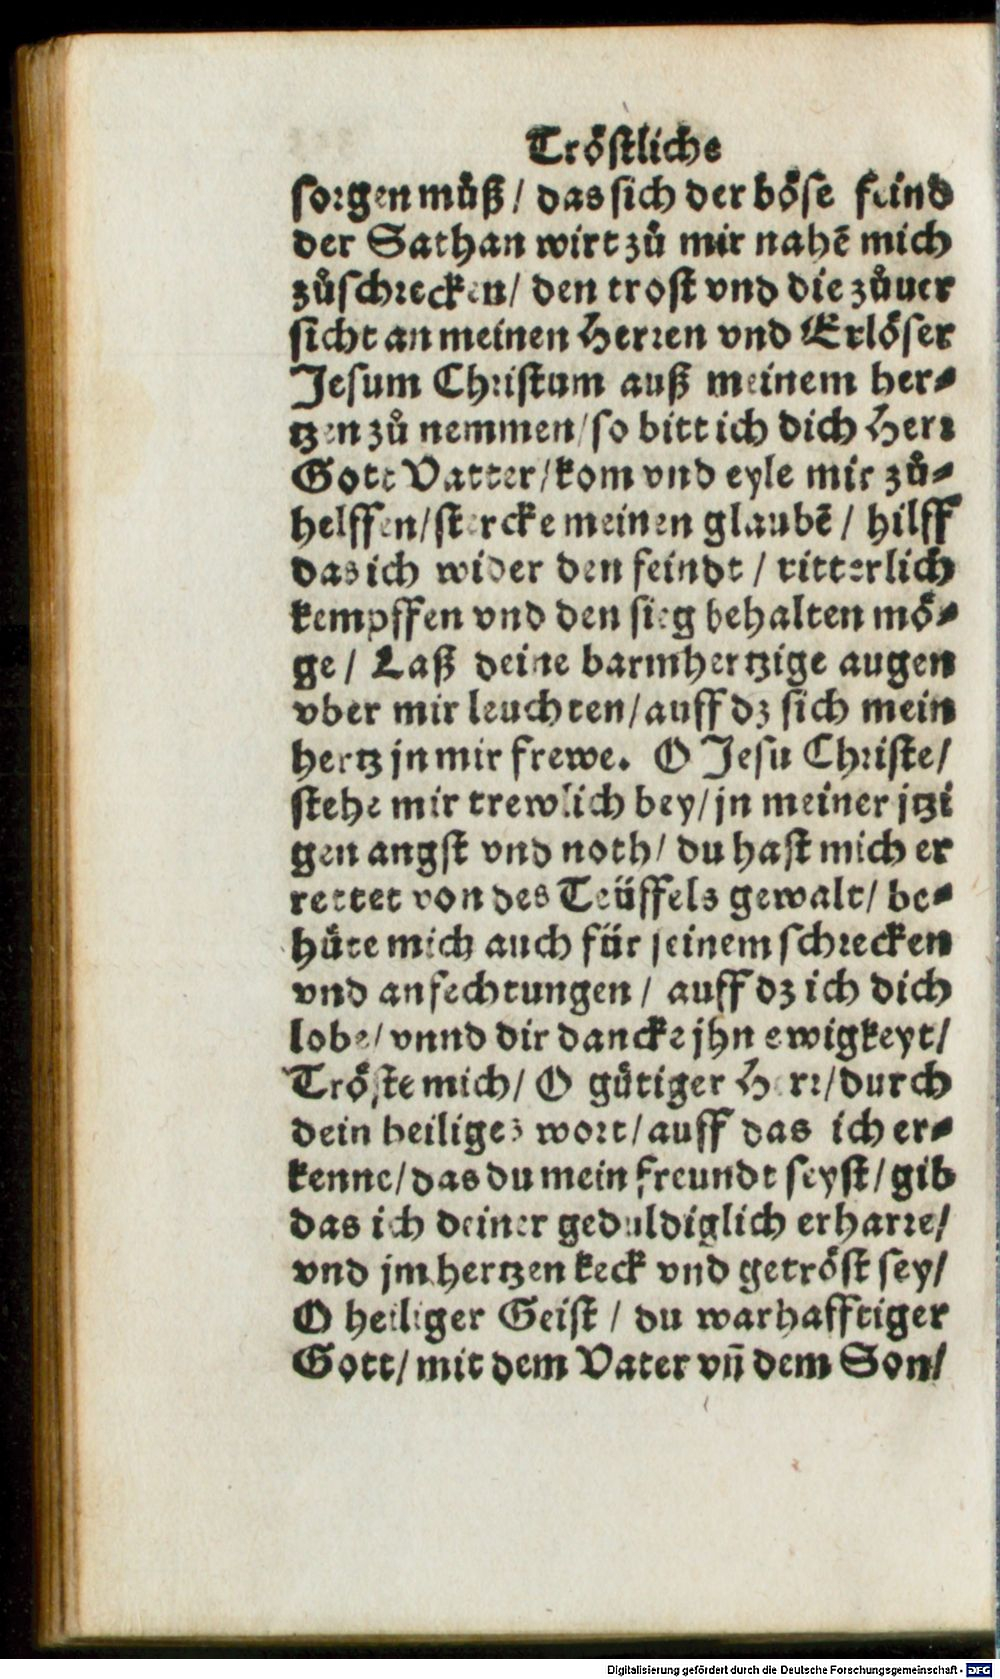 Tröſtliche
ſorgen můß / das ſich der böſe feind
der Sathan wirt zů mir nahẽ mich
zůſchrecken / den troſt vnd die zůuer
ſicht an meinen Herren vnd Erlöſer
Jeſum Chriſtum auß meinem her⸗
tzen zů nemmen / ſo bitt ich dich Herr
Gott Vatter / kom vnd eyle mir zů⸗
helffen / ſtercke meinen glaubẽ / hilff
das ich wider den feindt / ritterlich
kempffen vnd den ſieg behalten mö⸗
ge / Laß deine barmhertzige augen
vber mir leuchten / auff dz ſich mein
hertz jn mir frewe. O Jeſu Chriſte /
ſtehe mir trewlich bey / jn meiner jtzi
gen angſt vnd noth / du haſt mich er
rettet von des Teüffels gewalt / be⸗
hůte mich auch für ſeinem ſchrecken
vnd anfechtungen / auff dz ich dich
lobe / vnnd dir dancke jhn ewigkeyt /
Tröſte mich / O gůtiger Herr / durch
dein heiliges wort / auff das ich er⸗
kenne / das du mein freundt ſeyſt / gib
das ich deiner geduldiglich erharre /
vnd jm hertzen keck vnd getröſt ſey /
O heiliger Geiſt / du warhafftiger
Gott / mit dem Vater vñ dem Son /
Digitalisierung gefördert durch die Deutsche Forschungsgemeinschaft - DFG